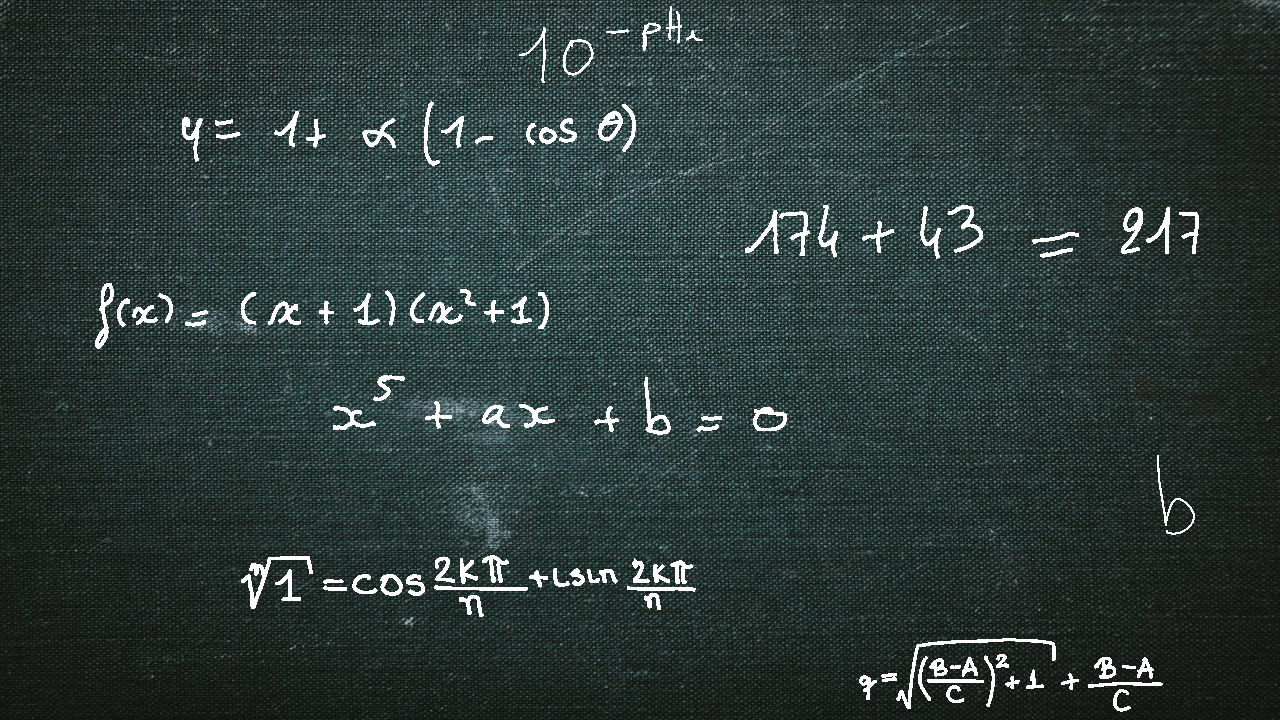 10^{-pH_i}
y = 1 + α (1 - cos θ)
174 + 43 = 217
f(x) = (x + 1)(x² + 1)
x⁵ + ax + b = 0
b
ⁿ√1 = cos \frac{2kπ}{n} + i sin \frac{2kπ}{n}
q = √((\frac{B-A}{C})² + 1) + \frac{B-A}{C}